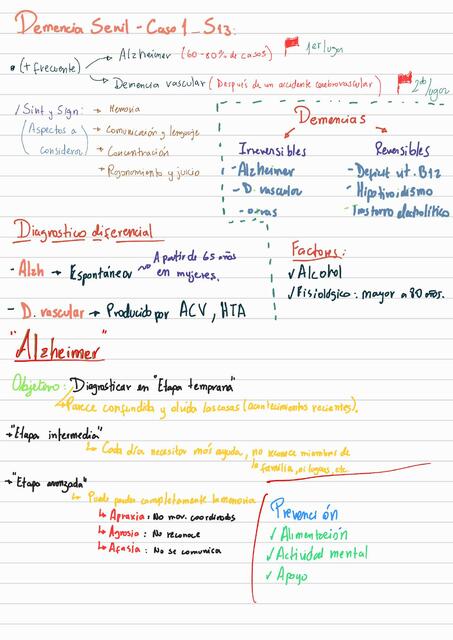 Demencia Senil - Caso 1_S13:
• (+ frecuente) → Alzheimer (60-80% de casos) 1er lugar
→ Demencia vascular (Después de un accidente cerebrovascular) 2do lugar
/Sint y Sign:
(Aspectos a considerar)
→ Memoria
→ Comunicación y lenguaje
→ Concentración
→ Razonamiento y juicio
Demencias
Irreversibles
- Alzheimer
- D. vascular
- otras
Reversibles
- Deficit vit. B12
- Hipotiroidismo
- Trastorno electrolítico
Diagnostico diferencial
- Alzh → Espontánea ~ A partir de 65 años
en mujeres.
- D. vascular → Producido por ACV, HTA
Factores:
✓ Alcohol
✓ Fisiológico: mayor a 80 años.
"Alzheimer"
Objetivo: Diagnosticar en "Etapa temprana"
↳ Parece confundida y olvida las cosas (acontecimientos recientes).
→ "Etapa intermedia"
↳ Cada día necesitar más ayuda, no reconoce miembros de
la familia, ni lugares, etc
→ "Etapa avanzada"
↳ Puede perder completamente la memoria
↳ Apraxia: No mov. coordinados
↳ Agnosia: No reconoce
↳ Afasia: No se comunica
Prevención
✓ Alimentación
✓ Actividad mental
✓ Apoyo